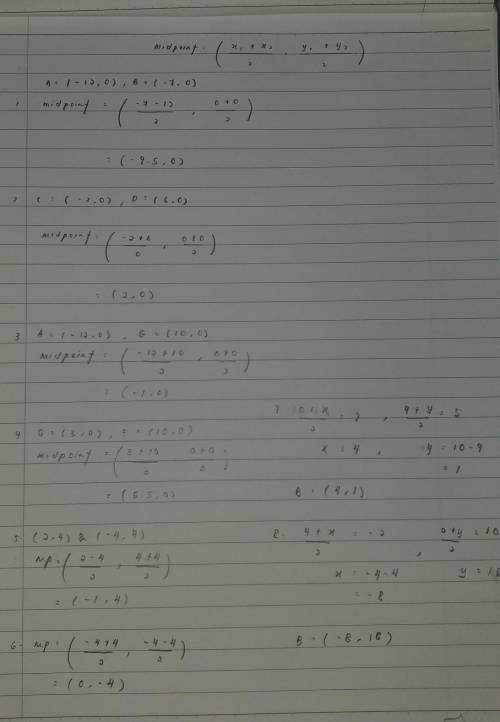 midpoint = ( x₁ + x₂ / 2 , y₁ + y₂ / 2 )
A = (-12,0) , B = (-7,0)
1 midpoint = ( -7-12 / 2 , 0+0 / 2 )
= (-9.5, 0)
2 C = (-2,0) , D = (6,0)
midpoint = ( -2+6 / 0 , 0+0 / 2 )
= (2,0)
3 A = (-12,0) , E = (10,0)
midpoint = ( -12+10 / 2 , 0+0 / 2 )
= (-1,0)
4 G = (3,0) , E = (10,0)
midpoint = ( 3+10 / 0 , 0+0 / 2 )
= (6.5,0)
5 (2,4) & (-4,4)
MP = ( 2-4 / 2 , 4+4 / 2 )
= (-1,4)
6. MP = ( -4+4 / 2 , -4-4 / 2 )
= (0,-4)
/ 2 = 2 , 9+y / 2 = 5
x = 4 , y = 10-9
= 1
B = (4,1)
8. 4+x / 2 = -2 , 2+y / 2 = 10
x = -4-4 y = 18
= -8
B = (-8, 18)